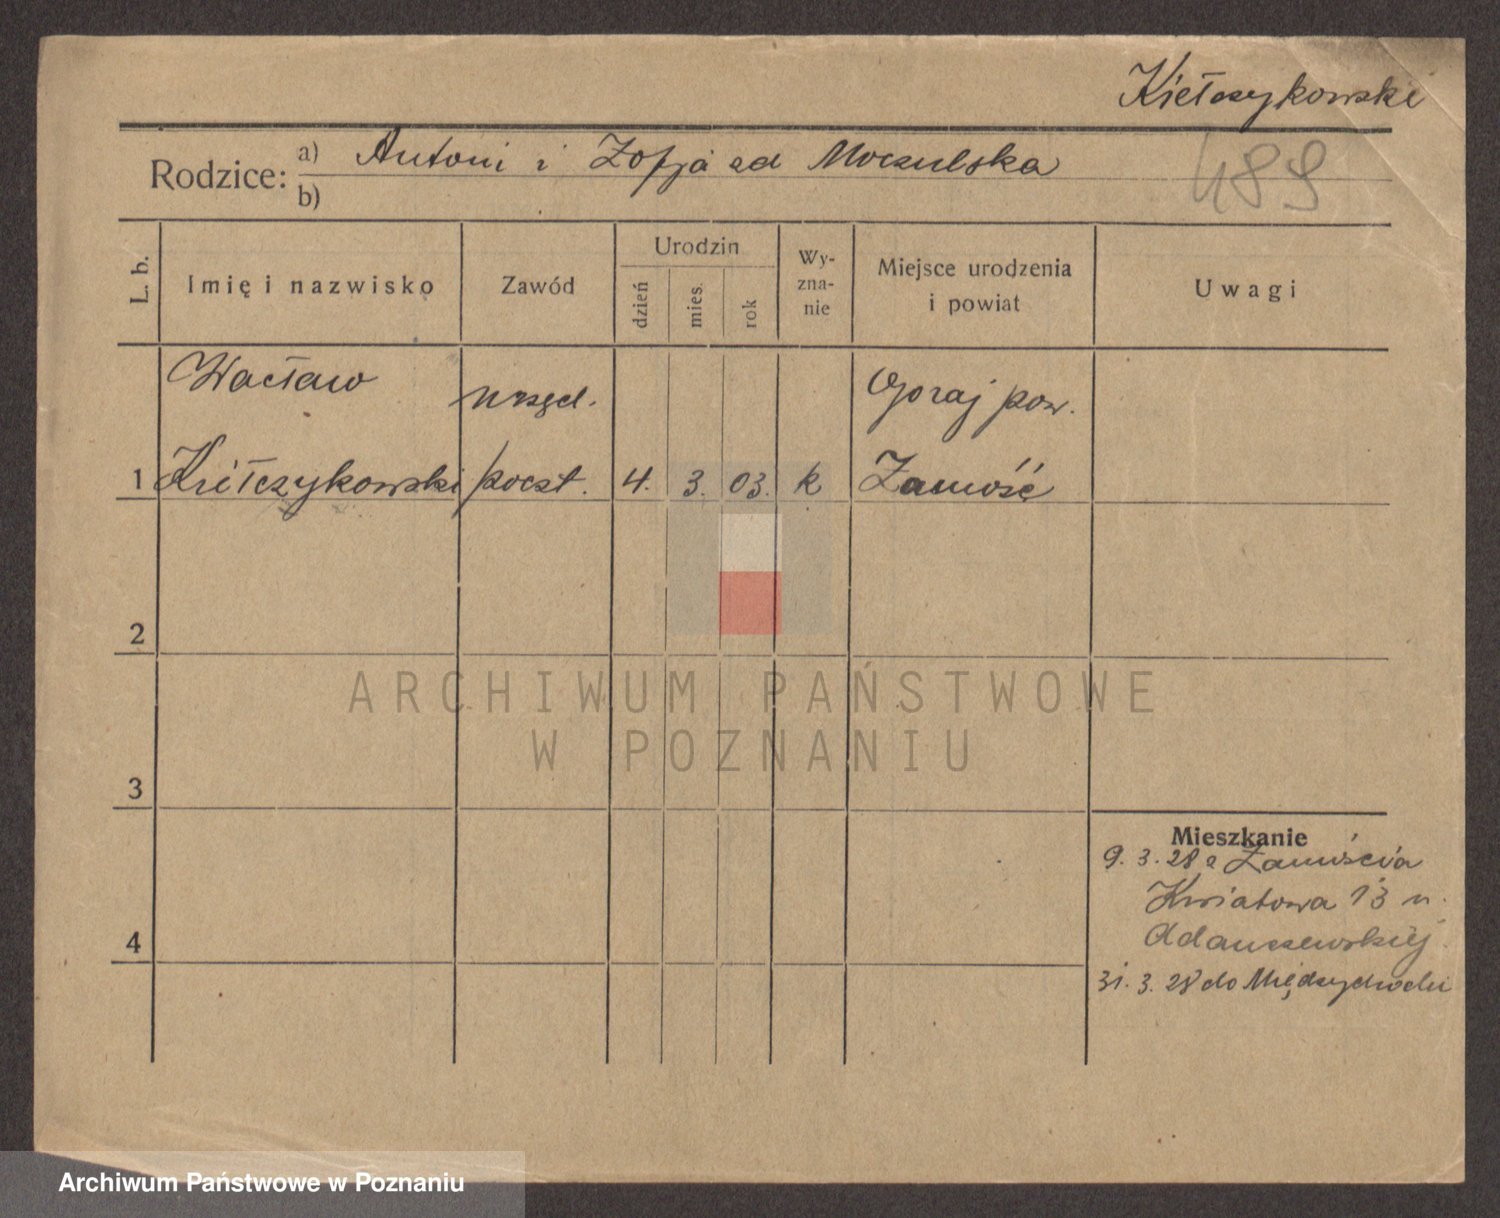 Kiełczykowski
Rodzice: a) Antoni i Zofja zd Moczulska
b)
489
L. b.
Imię i nazwisko
Zawód
Urodzin
dzień
mies.
rok
Wy-
zna-
nie
Miejsce urodzenia
i powiat
Uwagi
Wacław
urzęd.
Goraj pow.
1 Kiełczykowski poczt. 4. 3. 03. k Zamość
2
ARCHIWUM PAŃSTWOWE
W POZNANIU
3
Mieszkanie
9. 3. 28 z Zamościa
Kwiatowa 13 u.
Adamczewskiej
4
31. 3. 28 do Międzychodu
Archiwum Państwowe w Poznaniu